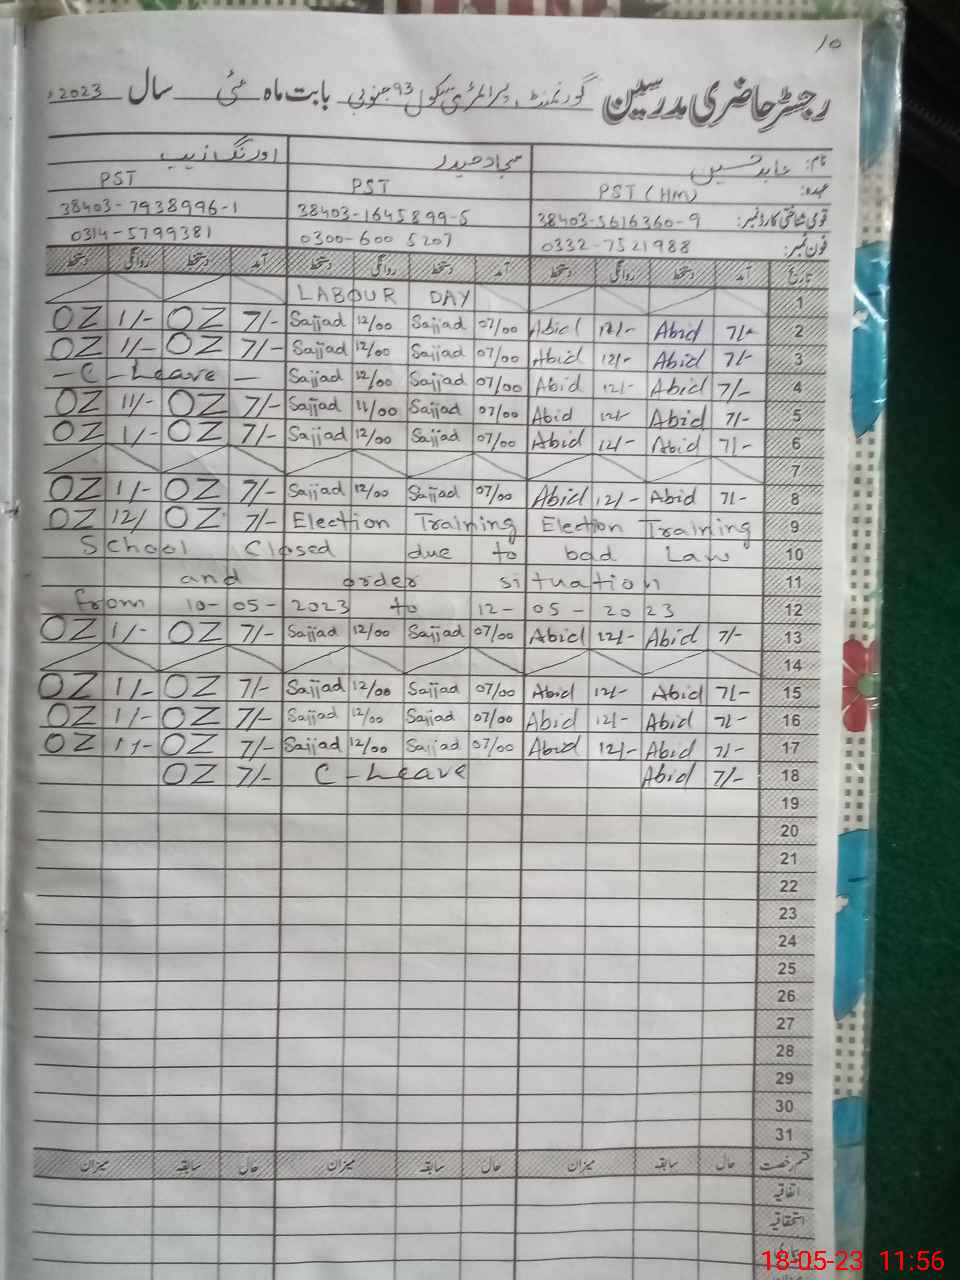 10
رجسٹر حاضری مدرسین گورنمنٹ پرائمری سکول 93 جنوبی بابت ماہ مئی سال 2023ء
نام: عابد حسین سجاد حیدر اورنگ زیب
عہدہ: PST (HM) PST PST
قومی شناختی کارڈ نمبر: 38403-5616360-9 38403-1645899-5 38403-7938996-1
فون نمبر: 0332-7521988 0300-600 5207 0314-5799381
تاریخ آمد دستخط روانگی دستخط آمد دستخط روانگی دستخط آمد دستخط روانگی دستخط
LABOUR DAY 1
OZ 1/- OZ 7/- Sajjad 12/00 Sajjad 07/00 Abid 12/- Abid 7/- 2
OZ 1/- OZ 7/- Sajjad 12/00 Sajjad 07/00 Abid 12/- Abid 7/- 3
- C - Leave - Sajjad 12/00 Sajjad 07/00 Abid 12/- Abid 7/- 4
OZ 11/- OZ 7/- Sajjad 11/00 Sajjad 07/00 Abid 12/- Abid 7/- 5
OZ 1/- OZ 7/- Sajjad 12/00 Sajjad 07/00 Abid 12/- Abid 7/- 6
7
OZ 1/- OZ 7/- Sajjad 12/00 Sajjad 07/00 Abid 12/- Abid 7/- 8
OZ 12/ OZ 7/- Election Training Election Training 9
School Closed due to bad Law 10
and order situation 11
from 10-05-2023 to 12-05-2023 12
OZ 1/- OZ 7/- Sajjad 12/00 Sajjad 07/00 Abid 12/- Abid 7/- 13
14
OZ 1/- OZ 7/- Sajjad 12/00 Sajjad 07/00 Abid 12/- Abid 7/- 15
OZ 1/- OZ 7/- Sajjad 12/00 Sajjad 07/00 Abid 12/- Abid 7/- 16
OZ 1/- OZ 7/- Sajjad 12/00 Sajjad 07/00 Abid 12/- Abid 7/- 17
OZ 7/- C - Leave Abid 7/- 18
19
20
21
22
23
24
25
26
27
28
29
30
31
قسم رخصت حال سابقہ میزان حال سابقہ میزان حال سابقہ میزان
اتفاقیہ
استحقاقیہ
18-05-23 11:56